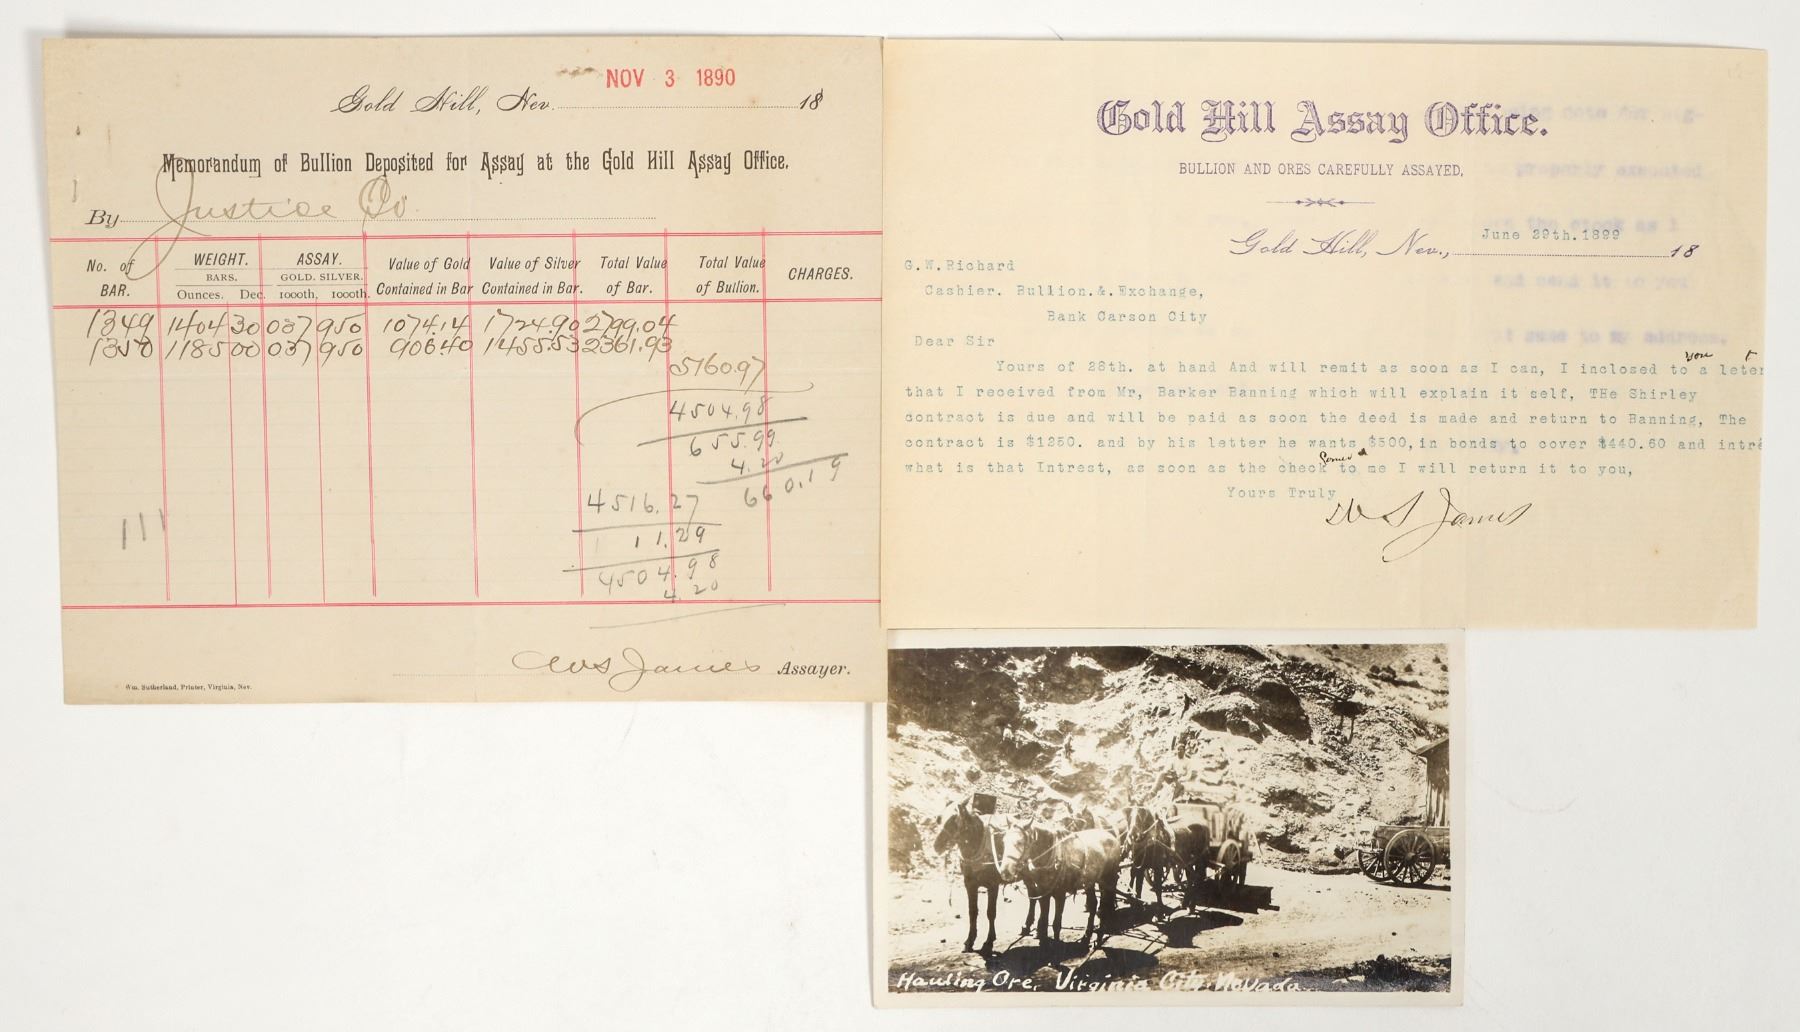 NOV 3 1890
Gold Hill, Nev. 18
Memorandum of Bullion Deposited for Assay at the Gold Hill Assay Office.
By Justice Co.
No. of BAR. WEIGHT. BARS. Ounces. Dec. ASSAY. GOLD. SILVER. 1000th, 1000th. Value of Gold Contained in Bar Value of Silver Contained in Bar. Total Value of Bar. Total Value of Bullion. CHARGES.
1349 1404 30 037 950 1074.14 1724.90 2799.04
1350 1185 00 037 950 906.40 1455.53 2361.93
5160.97
4504.98
655.99
4.20
660.19
4516.27
11.29
4504.98
4.20
111
W S James Assayer.
Wm. Sutherland, Printer, Virginia, Nev.
Gold Hill Assay Office.
BULLION AND ORES CAREFULLY ASSAYED,
Gold Hill, Nev., June 29th. 1899 18
G.W.Richard
Cashier. Bullion.&.Exchange,
Bank Carson City
Dear Sir
Yours of 28th. at hand And will remit as soon as I can, I inclosed to you a leter
that I received from Mr, Barker Banning which will explain it self, THe Shirley
contract is due and will be paid as soon the deed is made and return to Banning, The
contract is $1250. and by his letter he wants $500, in bonds to cover $440.60 and intre
what is that Intrest, as soon as the check to me I will return it to you,
Yours Truly
W S James
Hauling Ore, Virginia City. Nevada